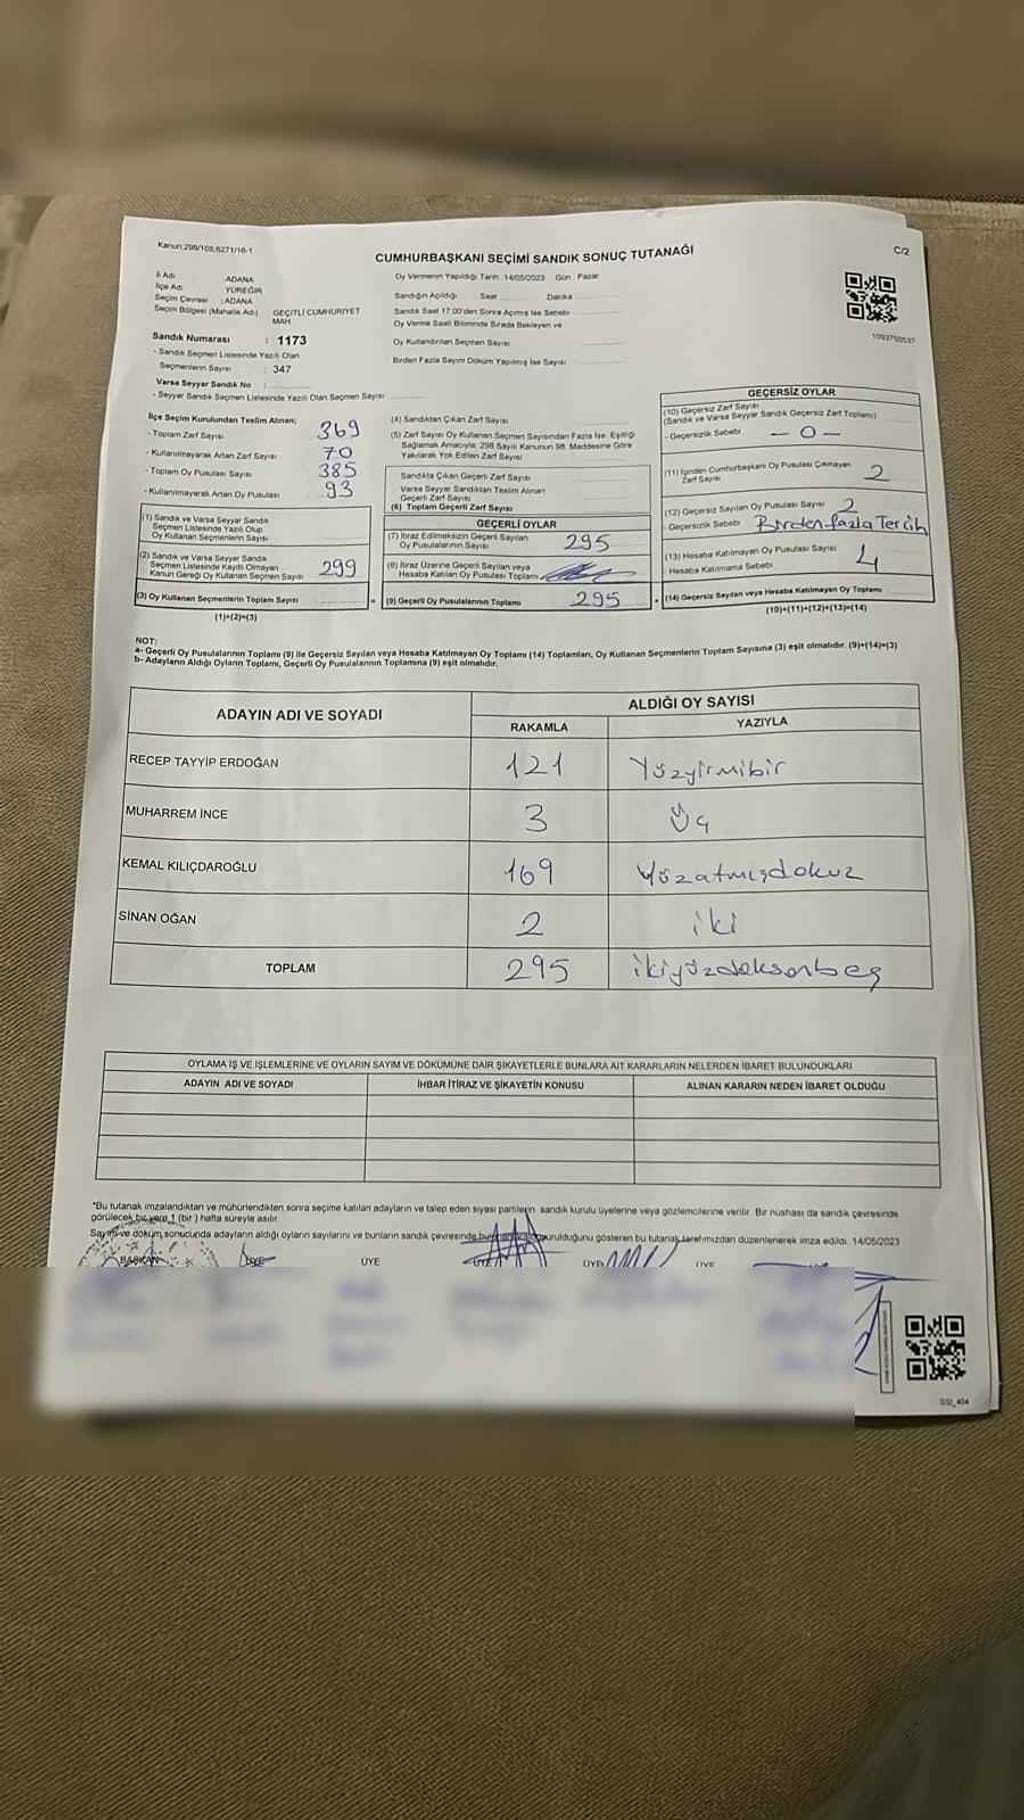 Kanun;298/105,6271/16-1
CUMHURBAŞKANI SEÇİMİ SANDIK SONUÇ TUTANAĞI
C/2
İl Adı ADANA
İlçe Adı YÜREĞİR
Seçim Çevresi :ADANA
Seçim Bölgesi (Mahalle Adı) GEÇİTLİ CUMHURİYET MAH
Sandık Numarası : 1173
- Sandık Seçmen Listesinde Yazılı Olan
Seçmenlerin Sayısı : 347
Varsa Seyyar Sandık No :
- Seyyar Sandık Seçmen Listesinde Yazılı Olan Seçmen Sayısı
Oy Vermenin Yapıldığı Tarih :14/05/2023 Gün : Pazar
Sandığın Açıldığı Saat Dakika
Sandık Saat 17.00'den Sonra Açılmış İse Sebebi
Oy Verme Saati Bitiminde Sırada Bekleyen ve
Oy Kullandırılan Seçmen Sayısı
Birden Fazla Sayım Döküm Yapılmış İse Sayısı
İlçe Seçim Kurulundan Teslim Alınan;
- Toplam Zarf Sayısı 369
- Kullanılmayarak Artan Zarf Sayısı 70
- Toplam Oy Pusulası Sayısı 385
- Kullanılmayarak Artan Oy Pusulası 93
(1) Sandık ve Varsa Seyyar Sandık
Seçmen Listesinde Yazılı Olup
Oy Kullanan Seçmenlerin Sayısı
(2) Sandık ve Varsa Seyyar Sandık
Seçmen Listesinde Kayıtlı Olmayan
Kanun Gereği Oy Kullanan Seçmen Sayısı 299
(3) Oy Kullanan Seçmenlerin Toplam Sayısı =
(1)+(2)=(3)
(4) Sandıktan Çıkan Zarf Sayısı
(5) Zarf Sayısı Oy Kullanan Seçmen Sayısından Fazla İse, Eşitliği
Sağlamak Amacıyla; 298 Sayılı Kanunun 98. Maddesine Göre
Yakılarak Yok Edilen Zarf Sayısı
Sandıkta Çıkan Geçerli Zarf Sayısı
Varsa Seyyar Sandıktan Teslim Alınan
Geçerli Zarf Sayısı
(6) Toplam Geçerli Zarf Sayısı
GEÇERLİ OYLAR
(7) İtiraz Edilmeksizin Geçerli Sayılan
Oy Pusulalarının Sayısı 295
(8) İtiraz Üzerine Geçerli Sayılan veya
Hesaba Katılan Oy Pusulası Toplamı
(9) Geçerli Oy Pusulalarının Toplamı 295 +
GEÇERSİZ OYLAR
(10) Geçersiz Zarf Sayısı
(Sandık ve Varsa Seyyar Sandık Geçersiz Zarf Toplamı)
- Geçersizlik Sebebi — 0 —
(11) İçinden Cumhurbaşkanı Oy Pusulası Çıkmayan
Zarf Sayısı 2
(12) Geçersiz Sayılan Oy Pusulası Sayısı 2
Geçersizlik Sebebi Birden fazla Tercih
(13) Hesaba Katılmayan Oy Pusulası Sayısı 4
Hesaba Katılmama Sebebi
(14) Geçersiz Sayılan veya Hesaba Katılmayan Oy Toplamı
(10)+(11)+(12)+(13)=(14)
NOT:
a- Geçerli Oy Pusulalarının Toplamı (9) ile Geçersiz Sayılan veya Hesaba Katılmayan Oy Toplamı (14) Toplamları, Oy Kullanan Seçmenlerin Toplam Sayısına (3) eşit olmalıdır. (9)+(14)=(3)
b- Adayların Aldığı Oyların Toplamı, Geçerli Oy Pusulalarının Toplamına (9) eşit olmalıdır.
ADAYIN ADI VE SOYADI ALDIĞI OY SAYISI
RAKAMLA YAZIYLA
RECEP TAYYİP ERDOĞAN 121 Yüzyirmibir
MUHARREM İNCE 3 Üç
KEMAL KILIÇDAROĞLU 169 Yüzatmışdokuz
SİNAN OĞAN 2 iki
TOPLAM 295 ikiyüzdoksanbeş
OYLAMA İŞ VE İŞLEMLERİNE VE OYLARIN SAYIM VE DÖKÜMÜNE DAİR ŞİKAYETLERLE BUNLARA AİT KARARLARIN NELERDEN İBARET BULUNDUKLARI
ADAYIN ADI VE SOYADI İHBAR İTİRAZ VE ŞİKAYETİN KONUSU ALINAN KARARIN NEDEN İBARET OLDUĞU
*Bu tutanak imzalandıktan ve mühürlendikten sonra seçime katılan adayların ve talep eden siyasi partilerin sandık kurulu üyelerine veya gözlemcilerine verilir. Bir nüshası da sandık çevresinde
görülecek bir yere 1 (bir ) hafta süreyle asılır.
Sayım ve döküm sonucunda adayların aldığı oyların sayılarını ve bunların sandık çevresinde gösteren bu tutanak tarafımızdan düzenlenerek imza edildi. 14/05/2023
BAŞKAN ÜYE ÜYE ÜYE ÜYE ÜYE